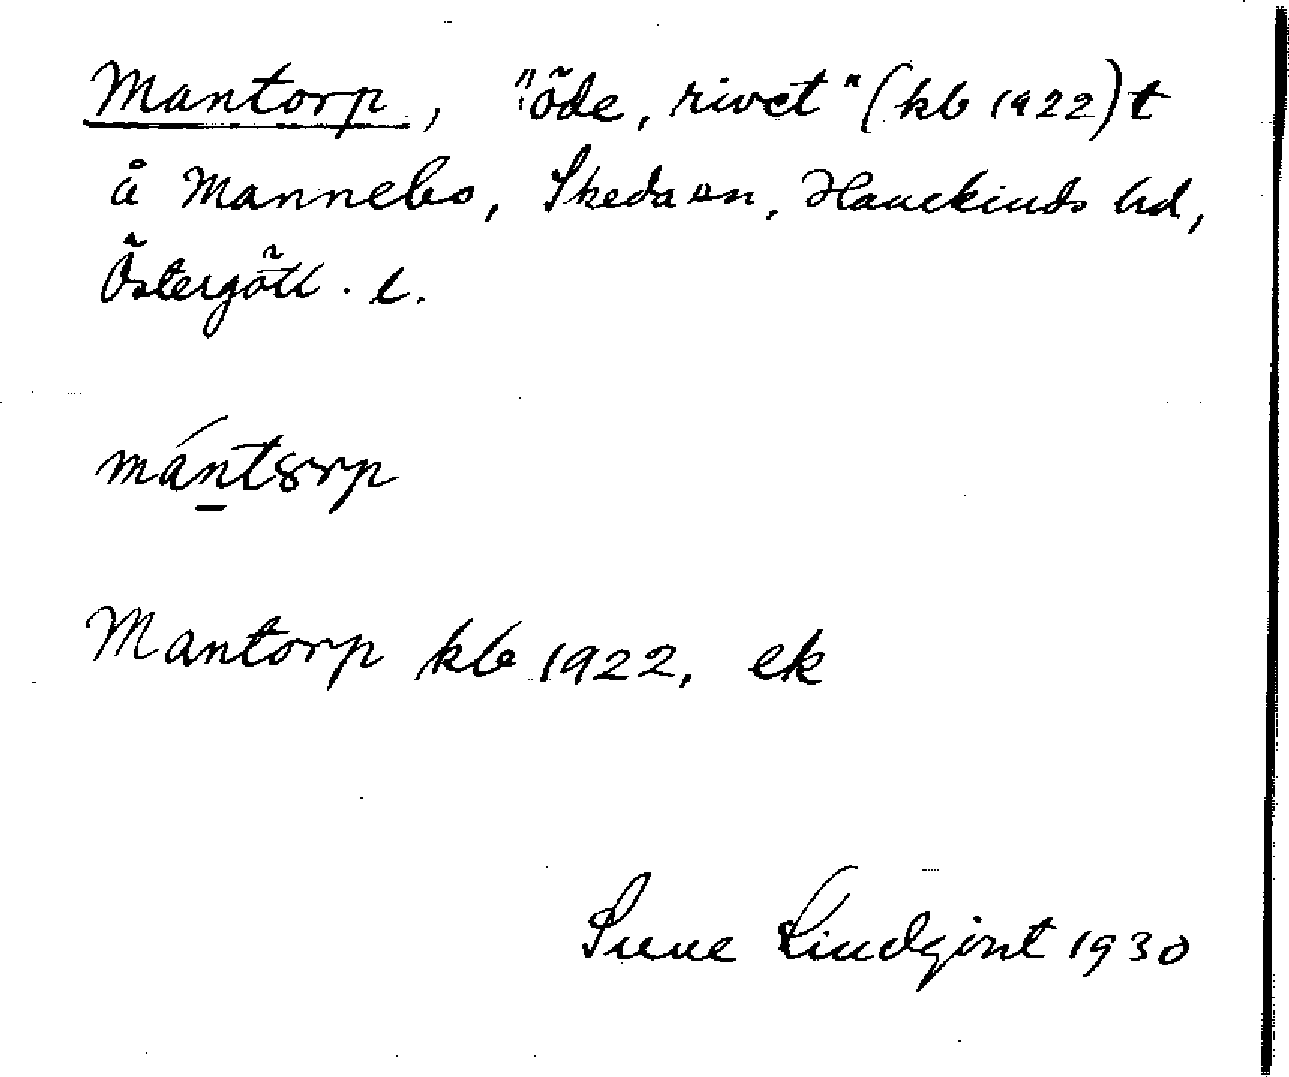 Mantorp, "öde, rivet" (kb 1922) t
å Mannebo, Skeda sn, Hanekinds hd,
Östergötl. l.
mántorp
Mantorp kb 1922, ek
Sune Lindqvist 1930